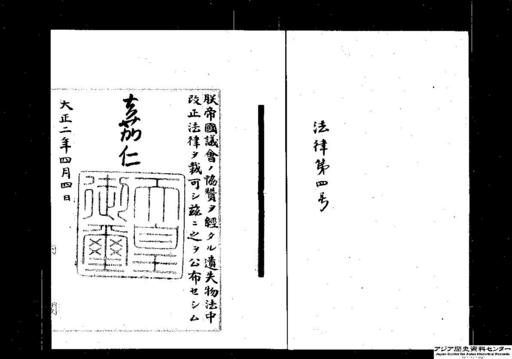 法律第四号
朕帝國議會ノ協賛ヲ經タル遺失物法中
改正法律ヲ裁可シ茲ニ之ヲ公布セシム
嘉仁
天皇
御璽
大正二年四月四日
アジア歴史資料センター
Japan Center for Asian Historical Records